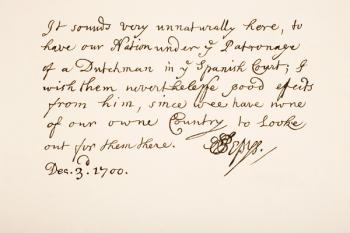 It sounds very unnaturally here, to
have our Nation under yᵉ Patronage
of a Dutchman in yᵉ Spanish Court; I
wish them neverthelesse good effects
from him, since wee have none
of our owne Country to Looke
out for them there. SPepys.
Dec. 3ᵈ 1700.